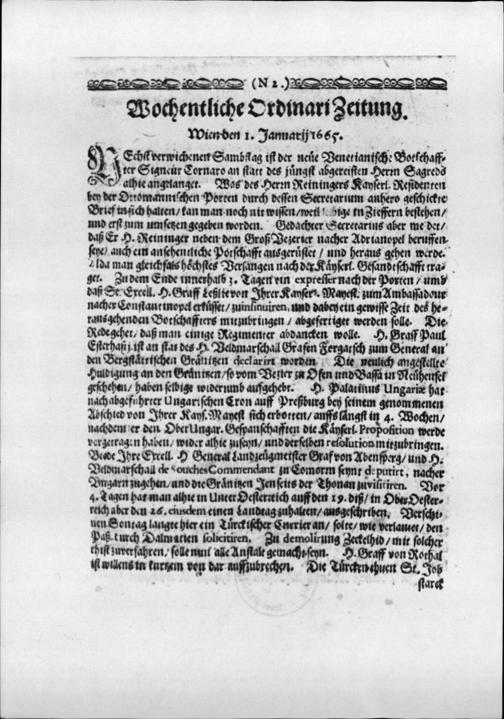 (N 2.)
Wochentliche Ordinari Zeitung.
Wien den 1. Januarij 1665.
NEchst verwichenen Sambstag ist der neüe Venetianische Botschaff-
ter Signeur Cornaro an statt des jüngst abgereisten Herrn Sagreds
alhie angelanget. Was des Herrn Reiningers Kayserl. Residenten
bey der Ottomannischen Porten durch dessen Secretarium anhero geschickte
Brief in sich halten / kan man noch nit wissen / weil selbige in Zieffern bestehen /
und erst zum umsetzen gegeben worden. Gedachter Secretarius aber meldet /
daß Er H. Reininger neben dem Groß Vezier nacher Adrianopel beruffen
seye / auch ein ansehentliche Potschafft ausgerüstet / und heraus gehen werde.
Alda man gleichfals höchstes Verlangen nach der Kayserl. Gesandtschafft tra-
get. Zu dem Ende innerhalb 3. Tagen ein expresser nach der Porten / umb
daß Sr. Excell. H. Graff Leßlie von Ihrer Kayserl. Mayest. zum Ambassadour
nacher Constantinopel erkiset / zu insinuiren, und dabey ein gewisse Zeit des he-
rausgehenden Botschaffters mitzubringen / abgefertiget werden solle. Die
Rede gehet / daß man einige Regimenter abdancken wolle. H. Graff Paul
Esterhasi ist an stat des H. Veldmarschall Grafen Forgatsch zum General an
den Bergstätrischen Gräntzen declarirt worden. Die neulich angestellte
Huldigung an den Gräntzen / so vom Vezier zu Ofen und Bassa in Neuhensel
geschehen / haben selbige widerumb aufgehebt. H. Palatinus Ungariæ hat
nach abgeführter Ungarischen Cron auff Preßburg bey seinem genommenen
Abschied von Ihrer Kays. Mayest. sich erbotten / auffs längst in 4. Wochen /
nachdem er den Ober Ungar. Gespanschafften die Käyserl. Proposition werde
vorgetragen haben / wider alhie zu seyn / und derselben resolution mitzubringen.
Beede Ihre Excell. H. General Landzeugmeister Graf von Abensperg / und H.
Veldmarschall de Souches Commendant zu Comorn seynd deputirt, nacher
Ungarn zu gehen / und die Gräntzen Jenseits der Thonau zu visitiren. Vor
4. Tagen hat man alhie in Unter Oesterreich auff den 19. diß / in Ober Oester-
reich aber den 26. eiusdem einen Landtag zuhalten / ausgeschriben. Verschi-
nen Sontag langte hier ein Türckischer Currier an / solte / wie verlautet / den
Paß durch Dalmatien solicitiren. Zu demolirung Zeckelhid / mit solcher
ehist zuverfahren / solle nun alle Anstalt gemacht seyn. H. Graff von Rothal
ist willens in kurtzem von dar auffzubrechen. Die Türcken ... St. Job
starck